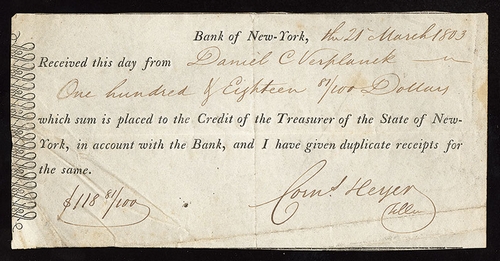 Bank of New-York, the 21 March 1803
Received this day from Daniel C Verplanck
One hundred & Eighteen 81/100 Dollars
which sum is placed to the Credit of the Treasurer of the State of New-
York, in account with the Bank, and I have given duplicate receipts for
the same.
$118 81/100
Corns. Heyer
Teller